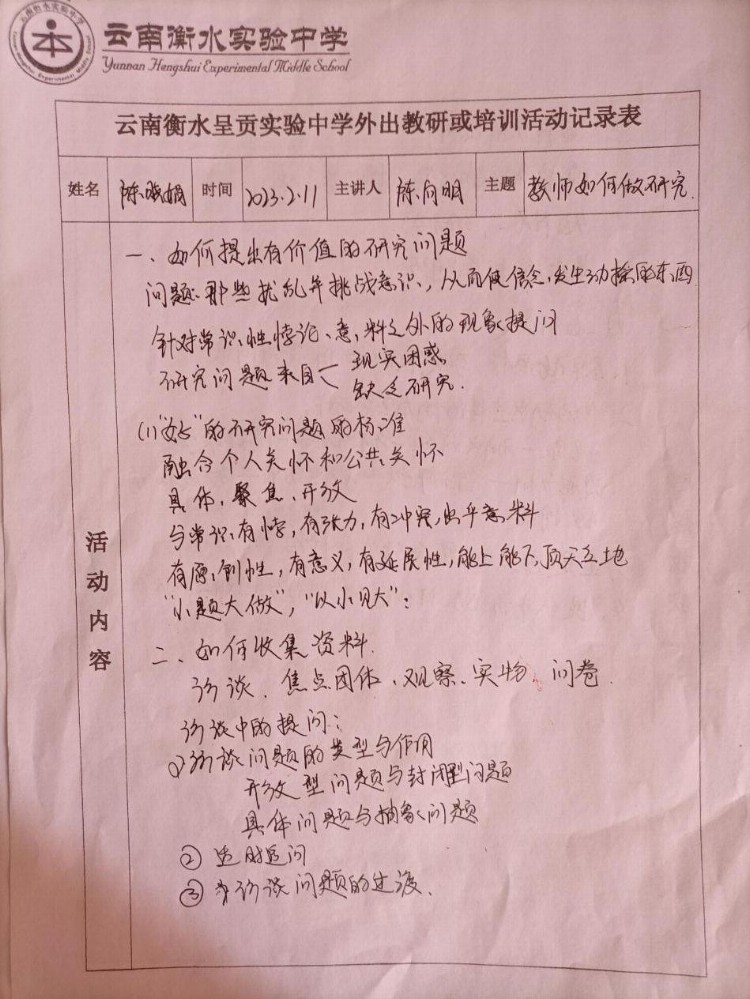 云南衡水实验中学
Yunnan Hengshui Experimental Middle School
云南衡水呈贡实验中学外出教研或培训活动记录表
姓名 陈晓娟 时间 2023.2.11 主讲人 陈向明 主题 教师如何做研究
活动内容
一、如何提出有价值的研究问题
问题:那些扰乱并挑战意识,从而使信念发生动摇的东西
针对常识性悖论、意料之外的现象提问
研究问题来自 现实困惑
缺乏研究.
(1)“好”的研究问题的标准
融合个人关怀和公共关怀
具体、聚焦、开放
与常识有悖,有张力,有冲突,出乎意料
有原创性,有意义,有延展性,能上能下,顶天立地
“小题大做”,“以小见大”;
二、如何收集资料.
访谈、焦点团体、观察、实物、问卷.
访谈中的提问:
①访谈问题的类型与作用
开放型问题与封闭型问题
具体问题与抽象问题
② 适时追问
③ 访谈问题的过渡.